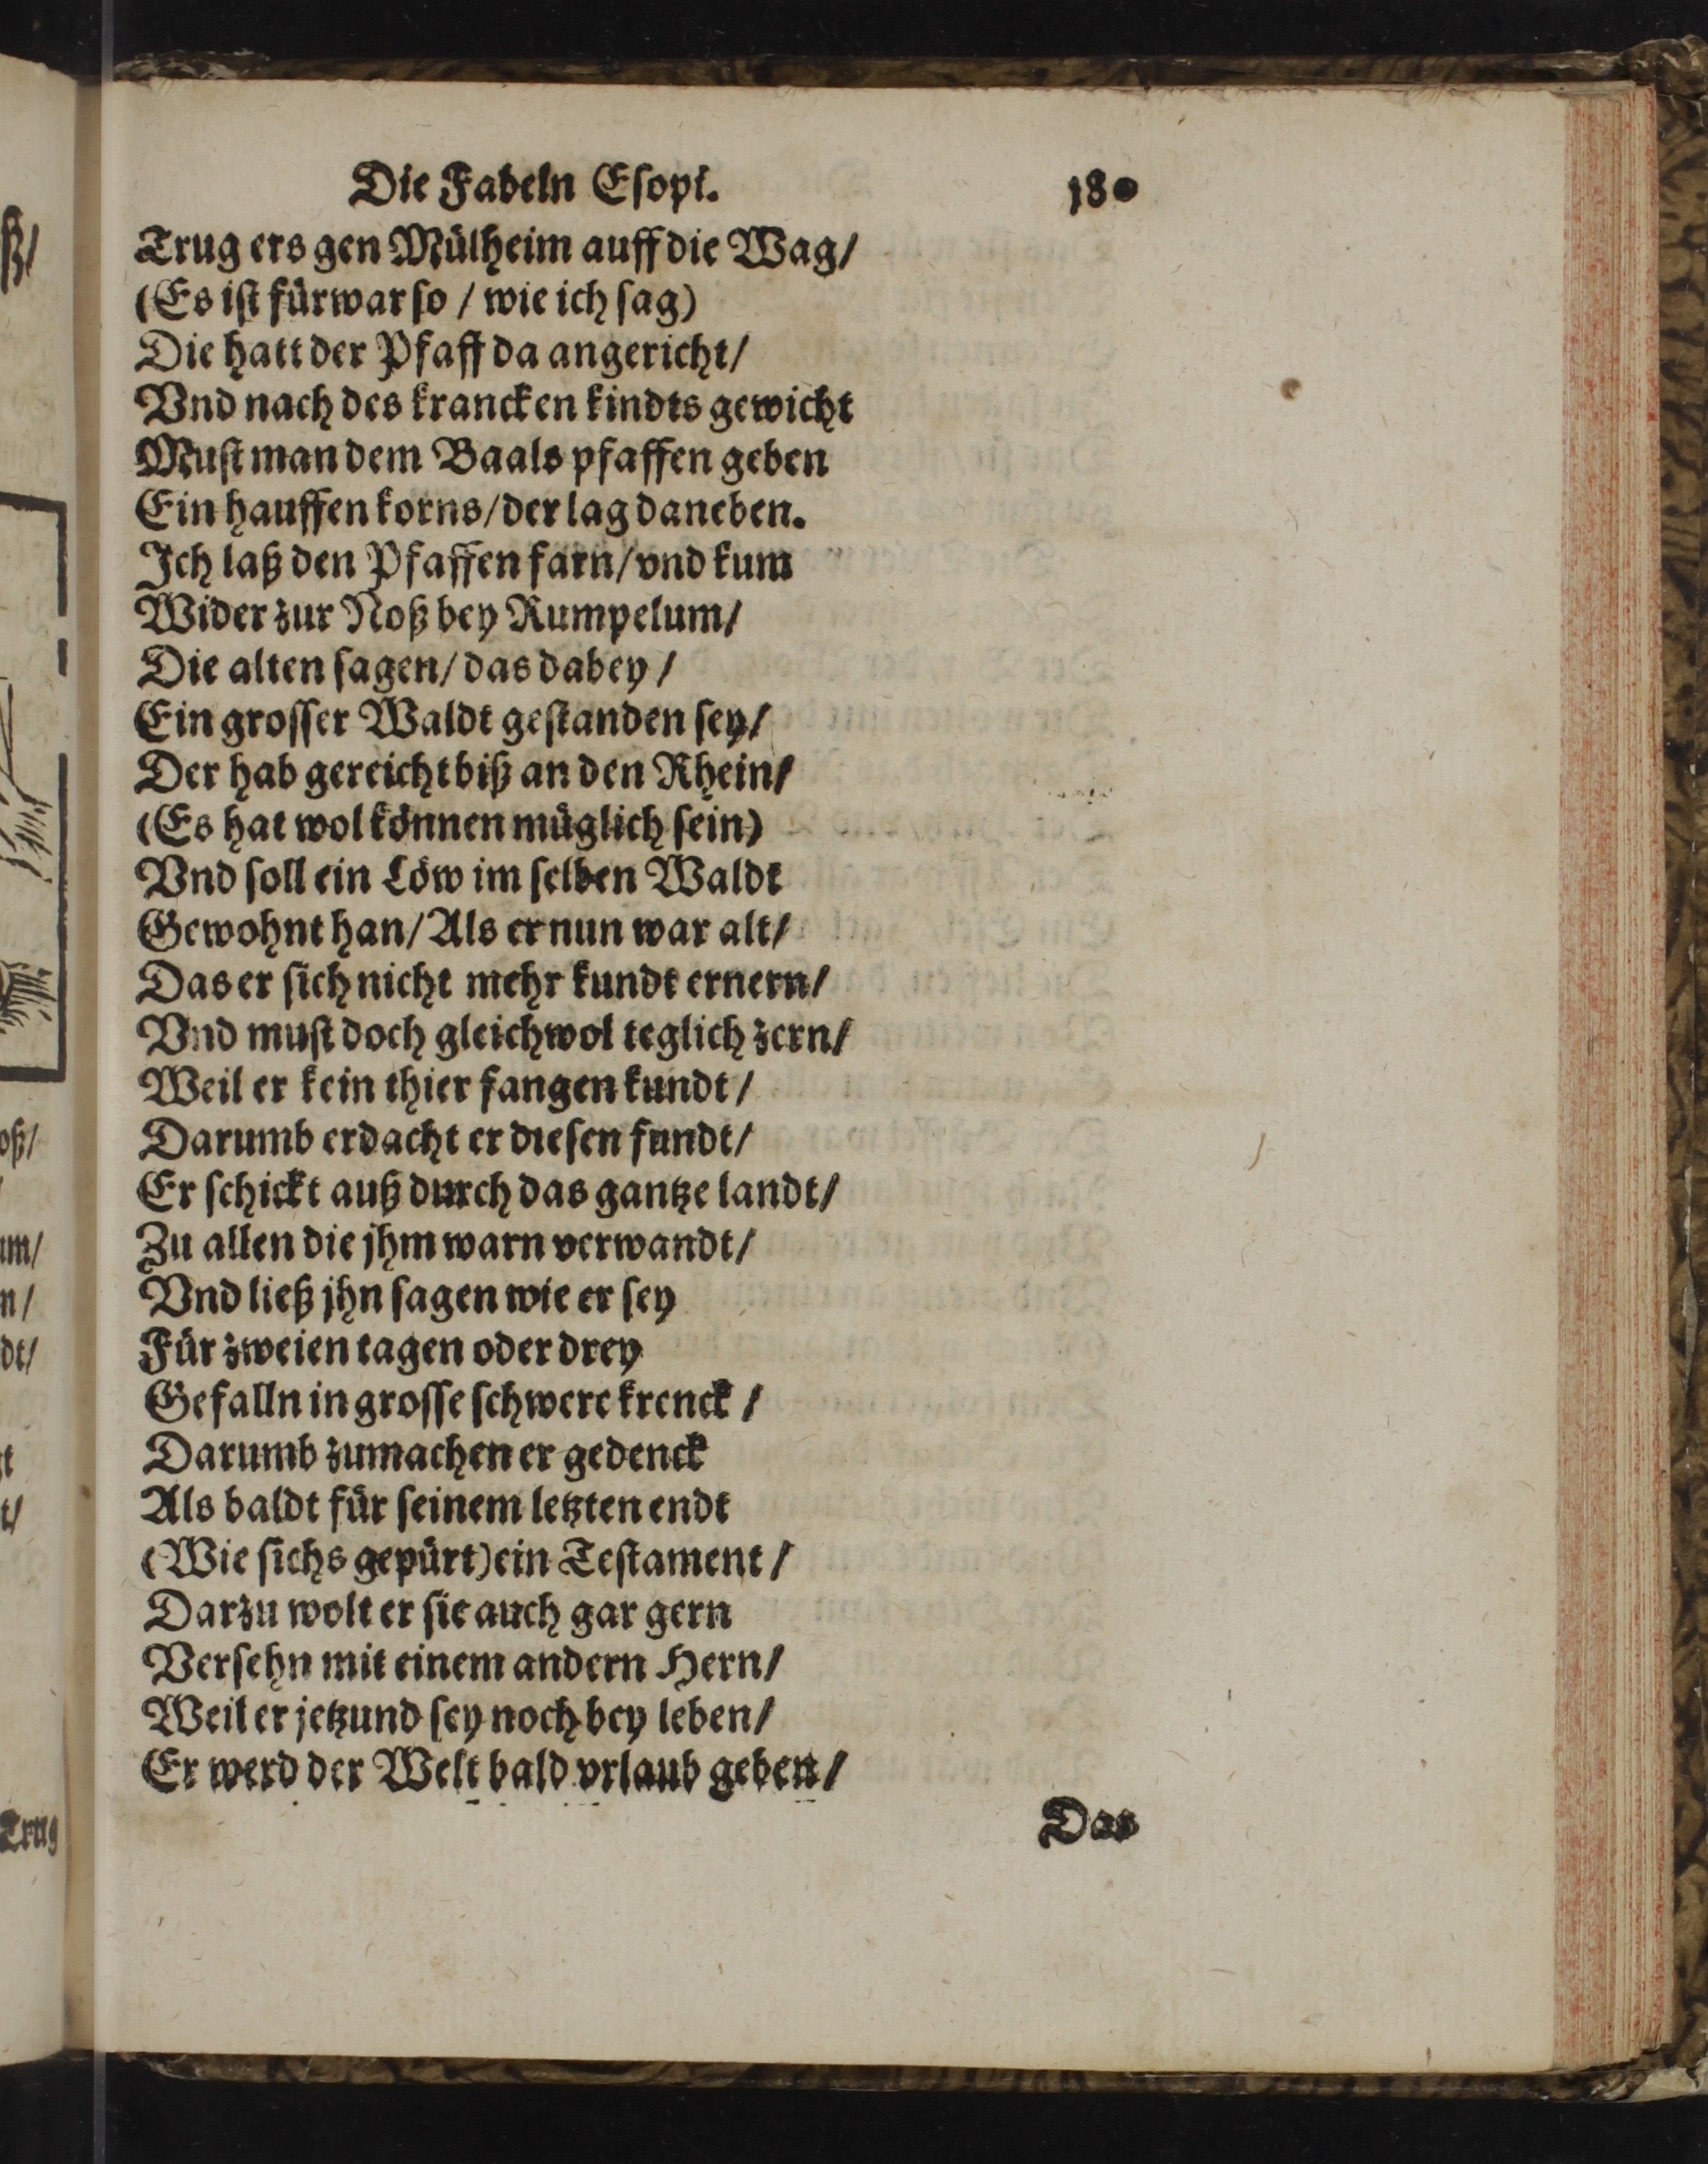 Die Fabeln Eſopi. 180
Trug ers gen Mülheim auff die Wag/
(Es iſt fürwar ſo / wie ich ſag)
Die hatt der Pfaff da angericht/
Vnd nach des krancken kindts gewicht
Muſt man dem Baals pfaffen geben
Ein hauffen korns/der lag daneben.
Ich laß den Pfaffen farn/vnd kum
Wider zur Noß bey Rumpelum/
Die alten ſagen/das dabey/
Ein groſſer Waldt geſtanden ſey/
Der hab gereicht biß an den Rhein/
(Es hat wol können müglich ſein)
Vnd ſoll ein Löw im ſelben Waldt
Gewohnt han/Als er nun war alt/
Das er ſich nicht mehr kundt ernern/
Vnd muſt doch gleichwol teglich zern/
Weil er kein thier fangen kundt/
Darumb erdacht er dieſen fundt/
Er ſchickt auß durch das gantze landt/
Zu allen die jhm warn verwandt/
Vnd ließ jhn ſagen wie er ſey
Für zweien tagen oder drey
Gefalln in groſſe ſchwere krenck/
Darumb zumachen er gedenck
Als baldt für ſeinem letzten endt
(Wie ſichs gepürt) ein Teſtament/
Darzu wolt er ſie auch gar gern
Verſehn mit einem andern Hern/
Weil er jetzund ſey noch bey leben/
Er werd der Welt bald vrlaub geben/
Das
ß/
oß/
um/
n/
dt/
t/
Trug